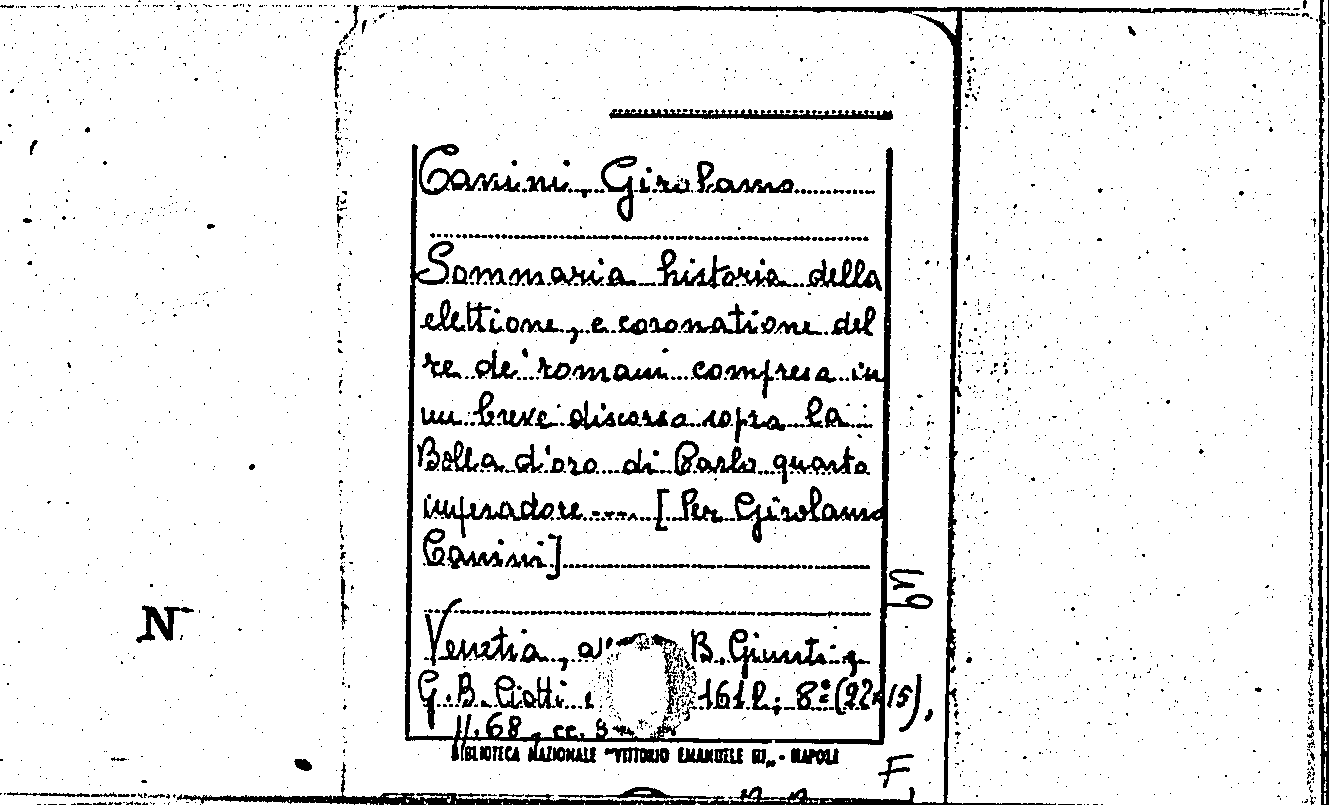 Canini, Girolamo
Sommaria historia della
elettione, e coronatione del
re de' romani compresa in
un breve discorso sopra la
Bolla d'oro di Carlo quarto
imperadore .... [Per Girolamo
Canini]
Venetia, B. Giunti, e
G. B. Ciotti 1612; 8º (22x15),
pp. 68, cc.
BIBLIOTECA NAZIONALE "VITTORIO EMANUELE III" - NAPOLI
bn
N
F